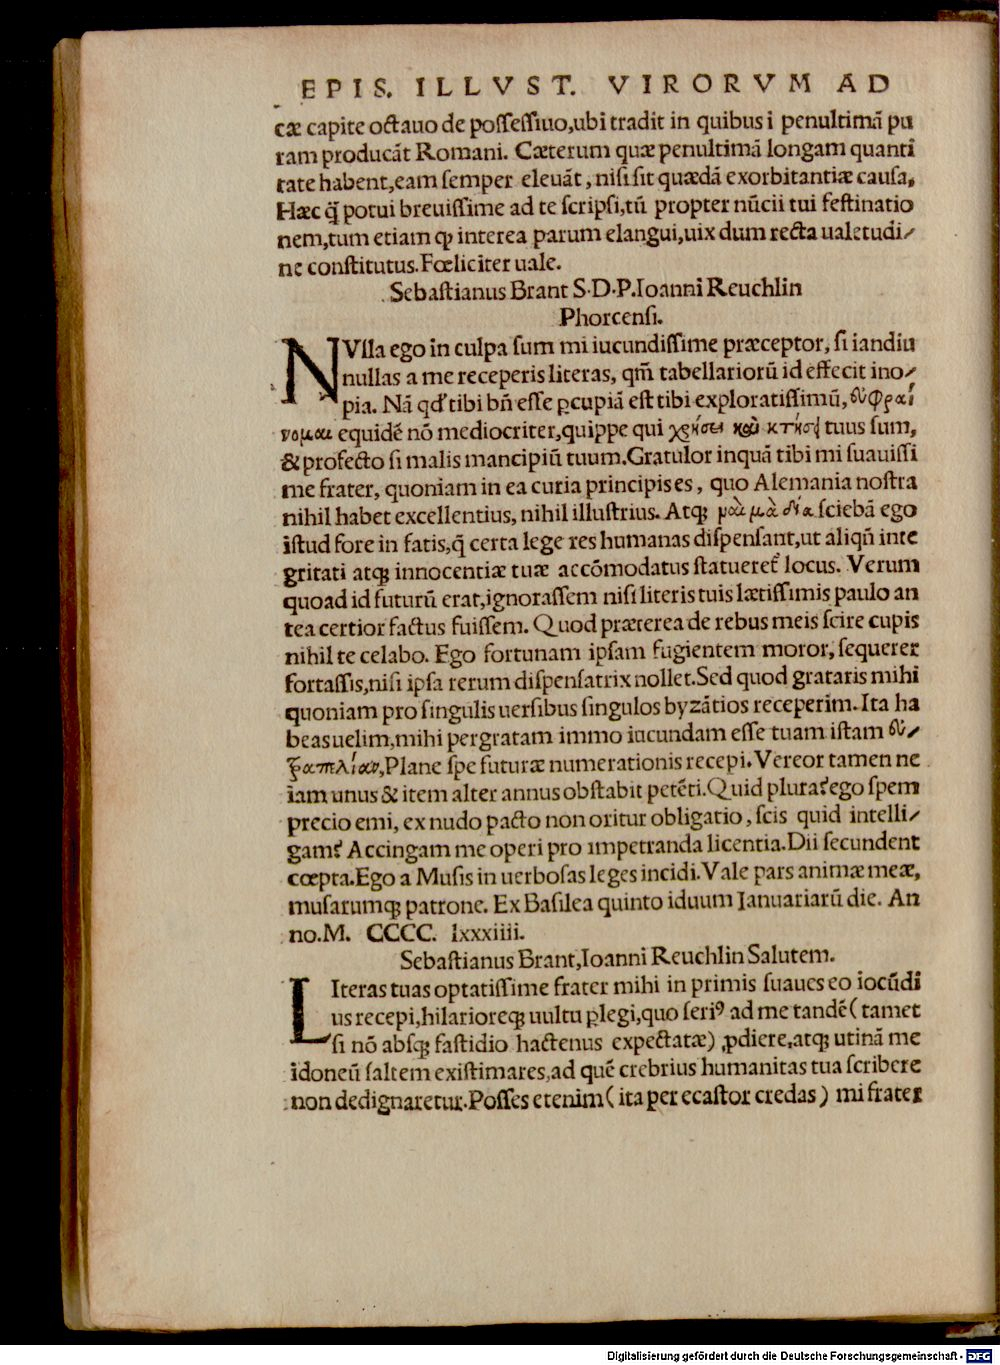 EPIS. ILLVST. VIRORVM AD
cæ capite octauo de possessiuo,ubi tradit in quibus i penultimā pu
ram producāt Romani. Cæterum quæ penultimā longam quanti
tate habent,eam semper eleuāt, nisi sit quædā exorbitantiæ causa,
Hæc q̄ potui breuissime ad te scripsi,tū propter nūcii tui festinatio
nem,tum etiam ꝙ interea parum elangui,uix dum recta ualetudi⸗
ne constitutus.Fœliciter uale.
Sebastianus Brant S.D.P.Ioanni Reuchlin
Phorcensi.
NVlla ego in culpa sum mi iucundissime præceptor, si iandiu
nullas a me receperis literas, qm̄ tabellariorū id effecit ino⸗
pia. Nā qď tibi bn̄ esse ꝑcupiā est tibi exploratissimū, εὐφραί
νομαι equidē nō mediocriter,quippe qui χρήσει καὶ κτήσει tuus sum,
& profecto si malis mancipiū tuum.Gratulor inquā tibi mi suauissi
me frater, quoniam in ea curia principis es, quo Alemania nostra
nihil habet excellentius, nihil illustrius. Atqꝫ ναὶ μὰ δία sciebā ego
istud fore in fatis,q̄ certa lege res humanas dispensant,ut aliqn̄ inte
gritati atqꝫ innocentiæ tuæ accōmodatus statueret᷑ locus. Verum
quoad id futurū erat,ignorassem nisi literis tuis lætissimis paulo an
tea certior factus fuissem. Quod præterea de rebus meis scire cupis
nihil te celabo. Ego fortunam ipsam fugientem moror, sequerer
fortassis,nisi ipsa rerum dispensatrix nollet.Sed quod grataris mihi
quoniam pro singulis uersibus singulos byzātios receperim. Ita ha
beas uelim,mihi pergratam immo iucundam esse tuam istam εὐ⸗
τραπελίαν,Plane spe futuræ numerationis recepi.Vereor tamen ne
iam unus & item alter annus obstabit petēti.Quid plura?ego spem
precio emi, ex nudo pacto non oritur obligatio, scis quid intelli⸗
gam? Accingam me operi pro impetranda licentia.Dii secundent
cœpta.Ego a Musis in uerbosas leges incidi.Vale pars animæ meæ,
musarumqꝫ patrone. Ex Basilea quinto iduum Ianuariarū die. An
no.M. CCCC. lxxxiiii.
Sebastianus Brant,Ioanni Reuchlin Salutem.
LIteras tuas optatissime frater mihi in primis suaues eo iocūdi
us recepi,hilarioreqꝫ uultu ꝑlegi,quo seriꝰ ad me tandē( tamet
si nō absqꝫ fastidio hactenus expectatæ) ꝓdiere,atqꝫ utinā me
idoneū saltem existimares,ad quē crebrius humanitas tua scribere
non dedignaretur.Posses etenim( ita per ecastor credas) mi frater
Digitalisierung gefördert durch die Deutsche Forschungsgemeinschaft - DFG